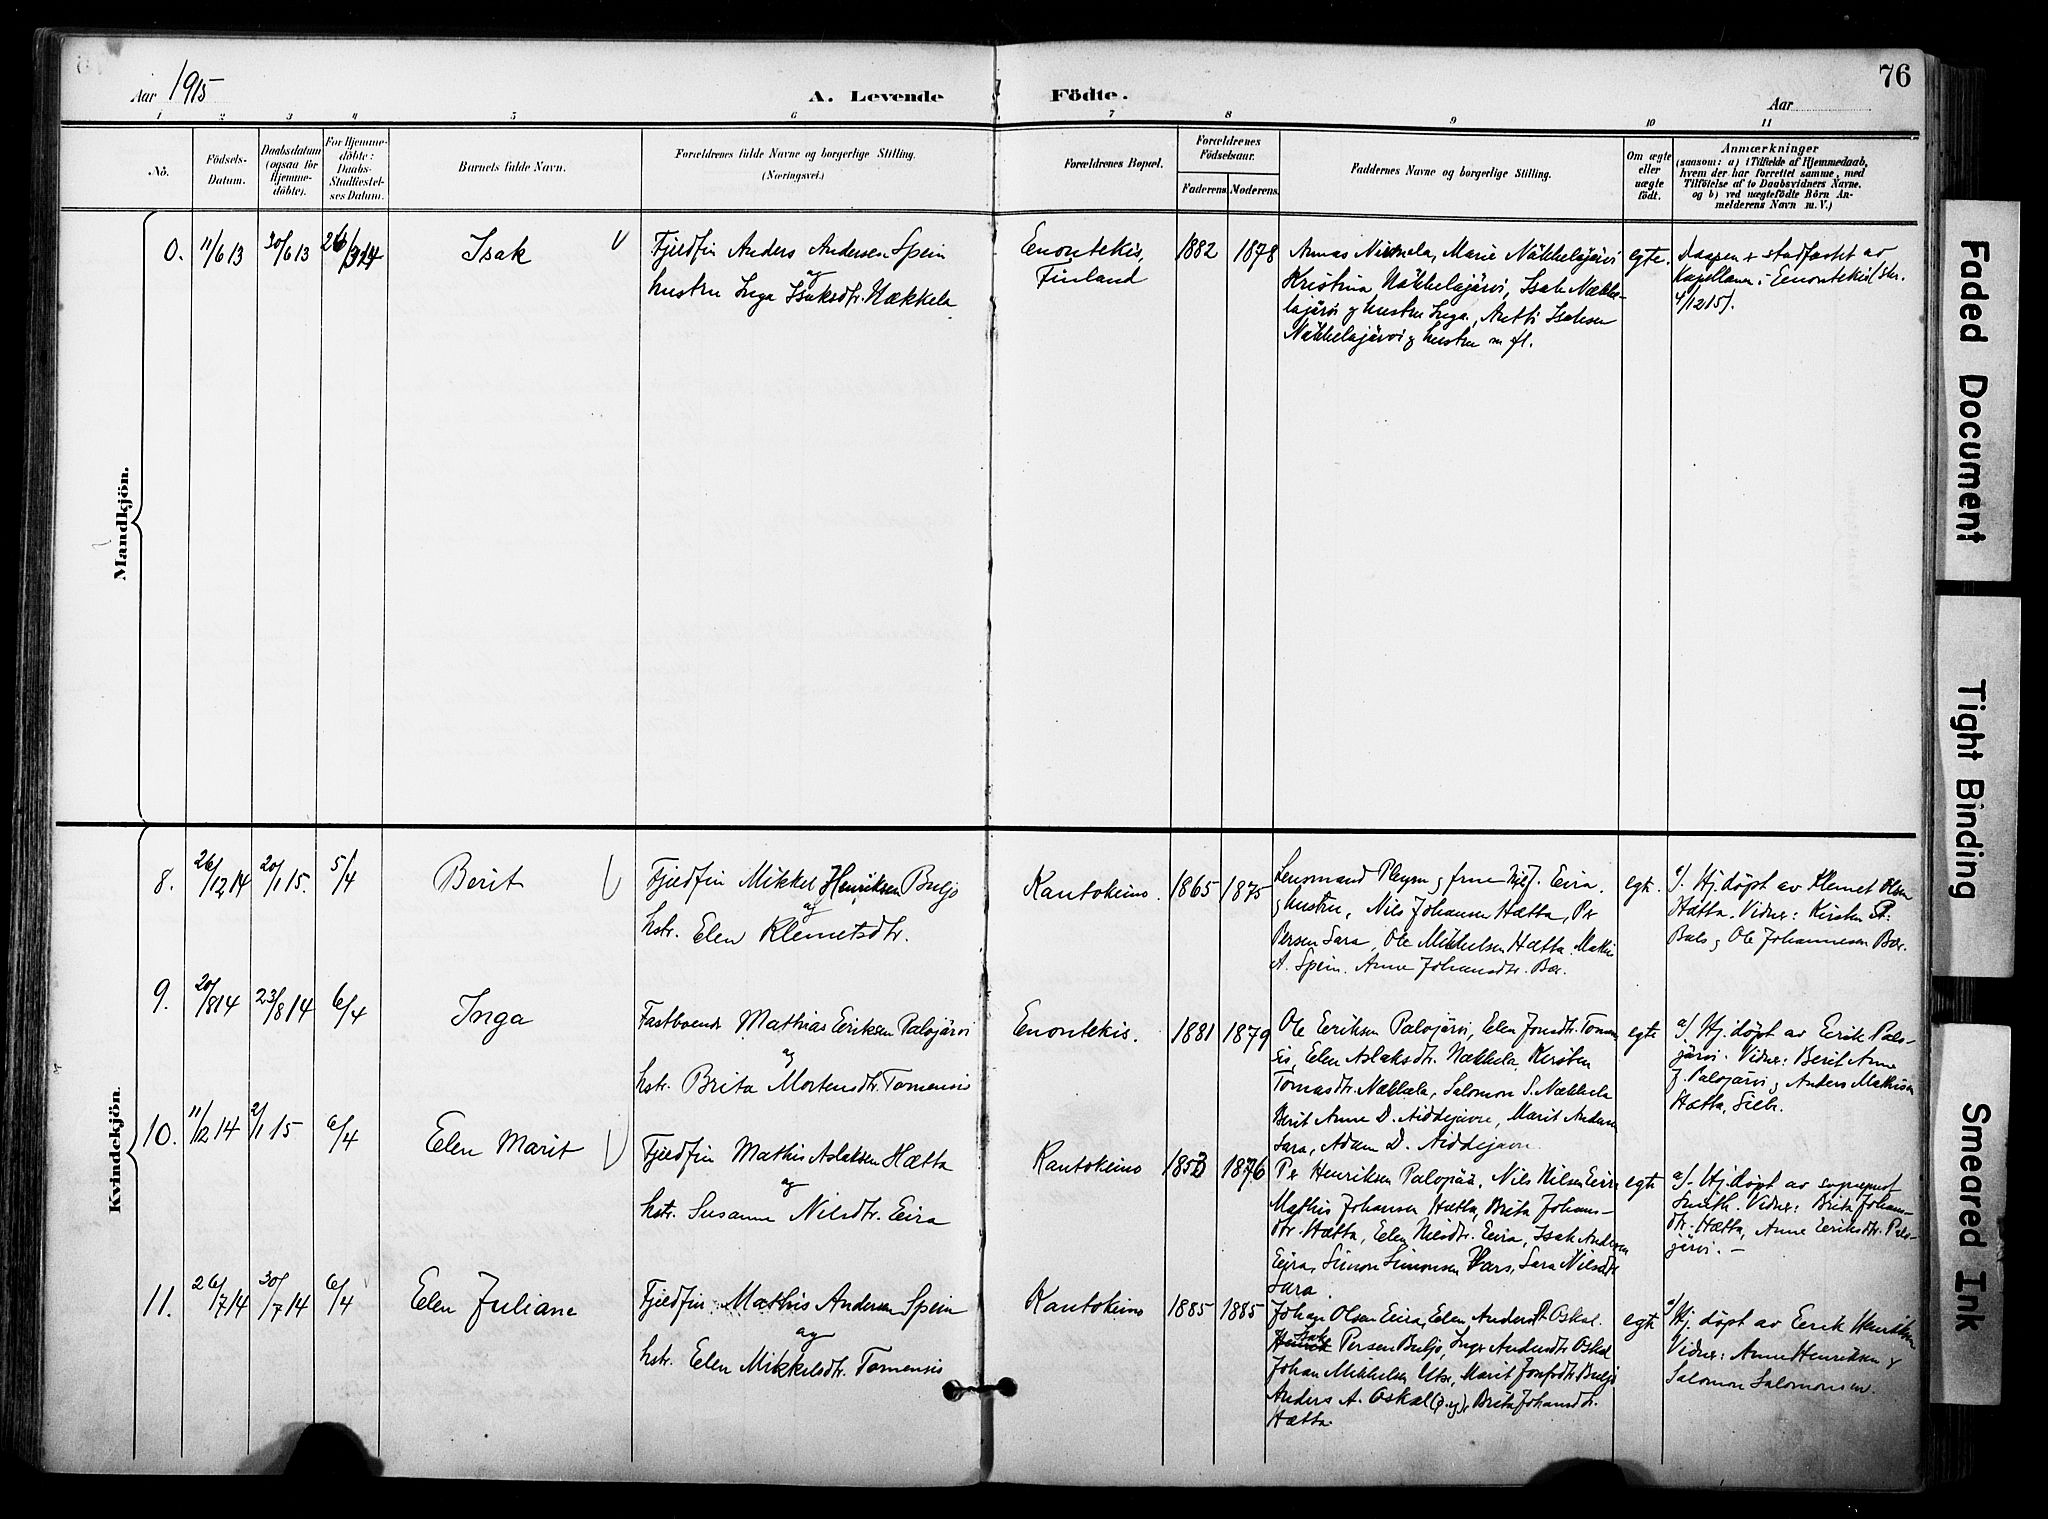 76
Aar 1915
A. Levende Födte.
Aar
1 2 3 4 5 6 7 8 9 10 11
No.
Födsels-Datum.
Daabsdatum (ogsaa for Hjemme-döbte).
For Hjemme-döbte: Daabs-Stadfæstel-ses Datum.
Barnets fulde Navn.
Forældrenes fulde Navne og borgerlige Stilling. (Næringsvei.)
Forældrenes Bopæl.
Forældrenes Födselsaar.
Faderens. Moderens.
Faddernes Navne og borgerlige Stilling.
Om ægte eller uægte födt.
Anmærkninger
(saasom: a) i Tilfælde af Hjemmedaab,
hvem der har forrettet samme, med
Tilföielse af to Daabsvidners Navne.
og b) ved uægtefödte Börn An-
melderens Navn m. V.)
Mandkjön.
0. 11/6 13 30/6 13 Isak
Fjeldfin Anders Andersen Spein
og
hustru Inga Isaksdtr. Nækkela
Enontekis,
Finland
1882 1878
Marie Näkkelajärvi
Kristina Näkkelajärvi, Isak Nække-
lajärvi g hustru Inga, Antti Isaksen
Näkkelajärvi g hustru m fl.
egte.
Daapen er stadfæstet av
Kapellanen i Enontekis (skr.
4/12 15).
Kvindekjön.
8. 26/12 14 20/1 15. 5/4 Berit
Fjeldfin Mikkel Henriksen Buljo
og
hstr. Elen Klemetsdtr.
Kautokeino. 1865 1875
Lensmand Pleym g frue Eira.
g hustru, Nils Johansen Hætta, Pr
Persen Sara, Ole Mikkelsen Hætta. Mathis
A. Spein. Anne Johansdtr. Bær.
egt.
a/. Hj. døpt av Klemet Olsen
Hætta. Vidner: Kirsten P.
Bals g Ole Johannesen Bær.
9. 20/8 14 23/8 14 6/4 Inga
Fastboende Mathias Eriksen Palojärvi
og
hstr. Brita Mortensdtr. Tomensis
Enontekis. 1881 1879
Ole Eriksen Palojärvi, Elen Jonsdtr. Tomen
sis, Elen Aslaksdtr. Nækkela, Kirsten
Tomasdtr. Nækkela, Salomon S. Nækkela
Berit Anne D. Aiddejavre, Marit Andersen
Sara, Adam D. Aiddejavre
egte
a/. Hj. døpt av Eerik Palo-
järvi. Vidner: Berit Anne
J. Palojärvi g Anders Mathisen
Hætta, Siebr.
10. 11/12 14 2/1 15 6/4 Elen Marit
Fjeldfin Mathis Aslaksen Hætta
og
hstr. Susanne Nilsdtr. Eira
Kautokeino 1853 1876
Pr Henriksen Palojää, Nils Nilsen Eira
Mathis Johansen Hætta, Brita Johans-
dtr. Hætta, Elen Nilsdtr. Eira, Isak Andersen
Eira, Simon Simonsen Vars, Sara Nilsdtr
Sara.
egte
a/. Hj. døpt av sogneprest
Smith. Vidner: Brita Johans-
dtr. Hætta, Anne Eeriksdtr. Palo-
järvi. –
11. 26/7 14 30/7 14 6/4 Elen Juliane
Fjeldfin Mathis Andersen Spein
og
hstr. Elen Mikkelsdtr. Tomensis
Kautokeino 1885 1885
Johan Olsen Eira, Elen Andersdt Oskal.
Isak
Henrik Persen Buljo, Inger Andersdtr Oskal
Johan Mikkelsen Utsi, Marit Josefsdtr. Buljo
Anders A. Oskal (d.y.), Brita Johansdtr.
Hætta
egte
a/ Hj. døpt av Eerik Henriksen
Vidner: Anne Henriksen g
Salomon Salomonsen.
Faded Document
Tight Binding
Smeared Ink